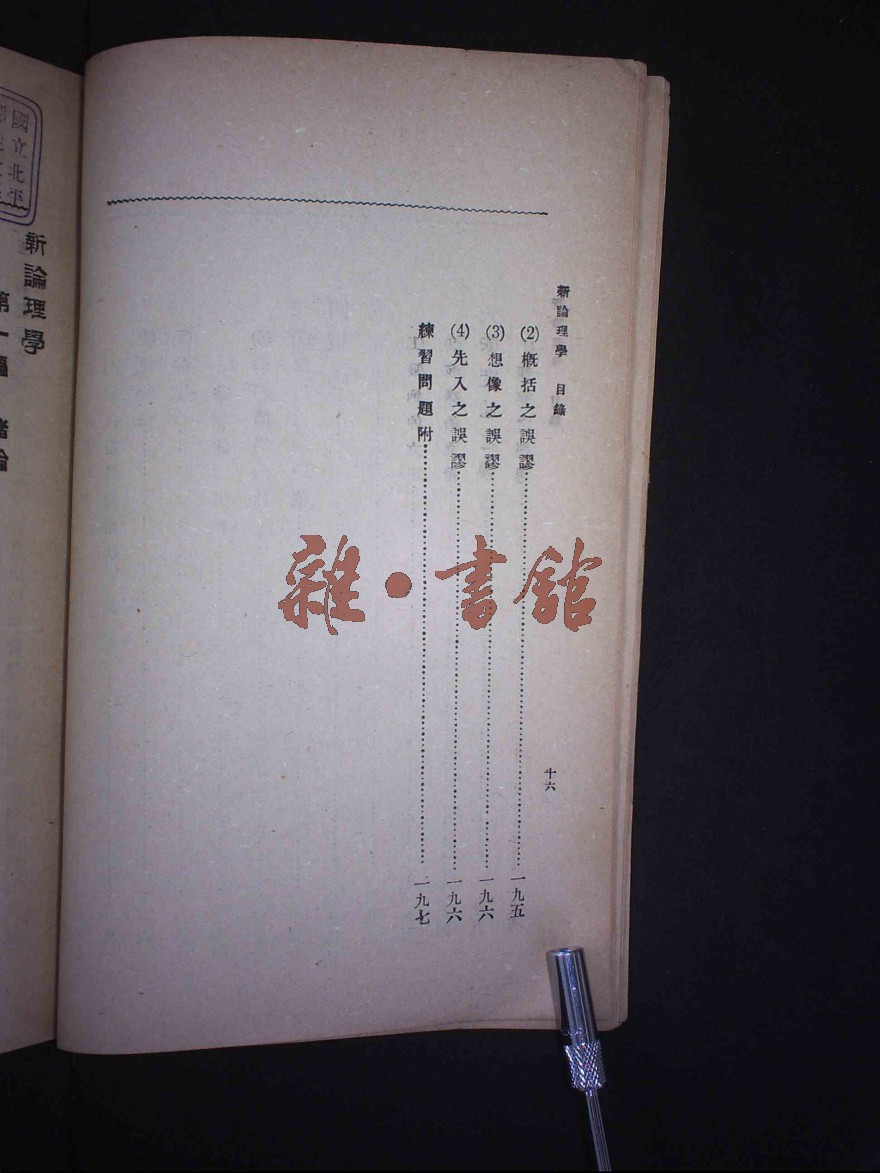 新論理學 目錄
(2)概括之誤謬……一九五
(3)想像之誤謬……一九六
(4)先入之誤謬……一九六
練習問題附……一九七
十六
雜·書館
國立北平
新論理學
第一編 緒論